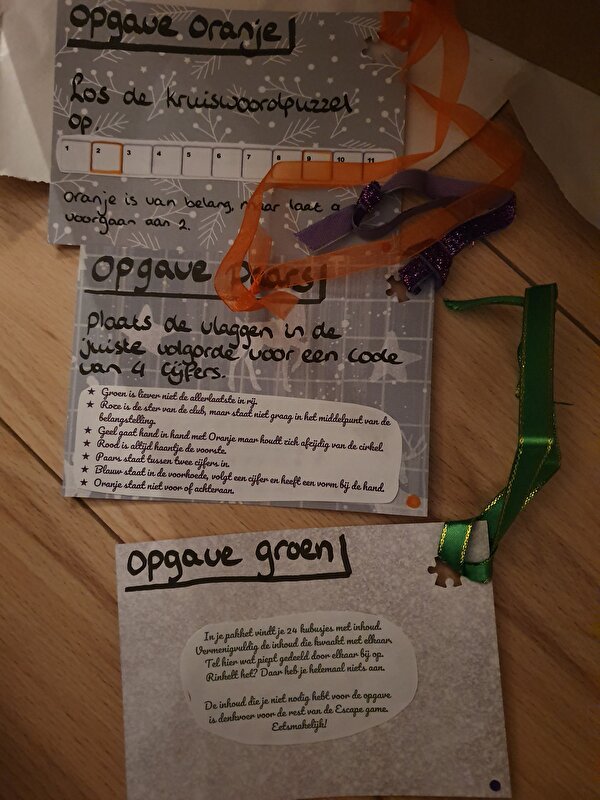 Opgave Oranje
Los de kruiswoordpuzzel
op
1 2 3 4 5 6 7 8 9 10 11
Oranje is van belang, maar laat 9
voorgaan aan 2.
Opgave Paars
Plaats de vlaggen in de
juiste volgorde voor een code
van 4 cijfers.
★ Groen is liever niet de allerlaatste in rij.
★ Roze is de ster van de club, maar staat niet graag in het middelpunt van de
belangstelling.
★ Geel gaat hand in hand met Oranje maar houdt zich afzijdig van de cirkel.
★ Rood is altijd haantje de voorste.
★ Paars staat tussen twee cijfers in.
★ Blauw staat in de voorhoede, volgt een cijfer en heeft een vorm bij de hand.
★ Oranje staat niet voor of achteraan.
Opgave groen
In je pakket vindt je 24 kubusjes met inhoud.
Vermenigvuldig de inhoud die kwaakt met elkaar.
Tel hier wat piept gedeeld door elkaar bij op.
Rinkelt het? Daar heb je helemaal niets aan.
De inhoud die je niet nodig hebt voor de opgave
is denkvoer voor de rest van de Escape game.
Eetsmakelijk!